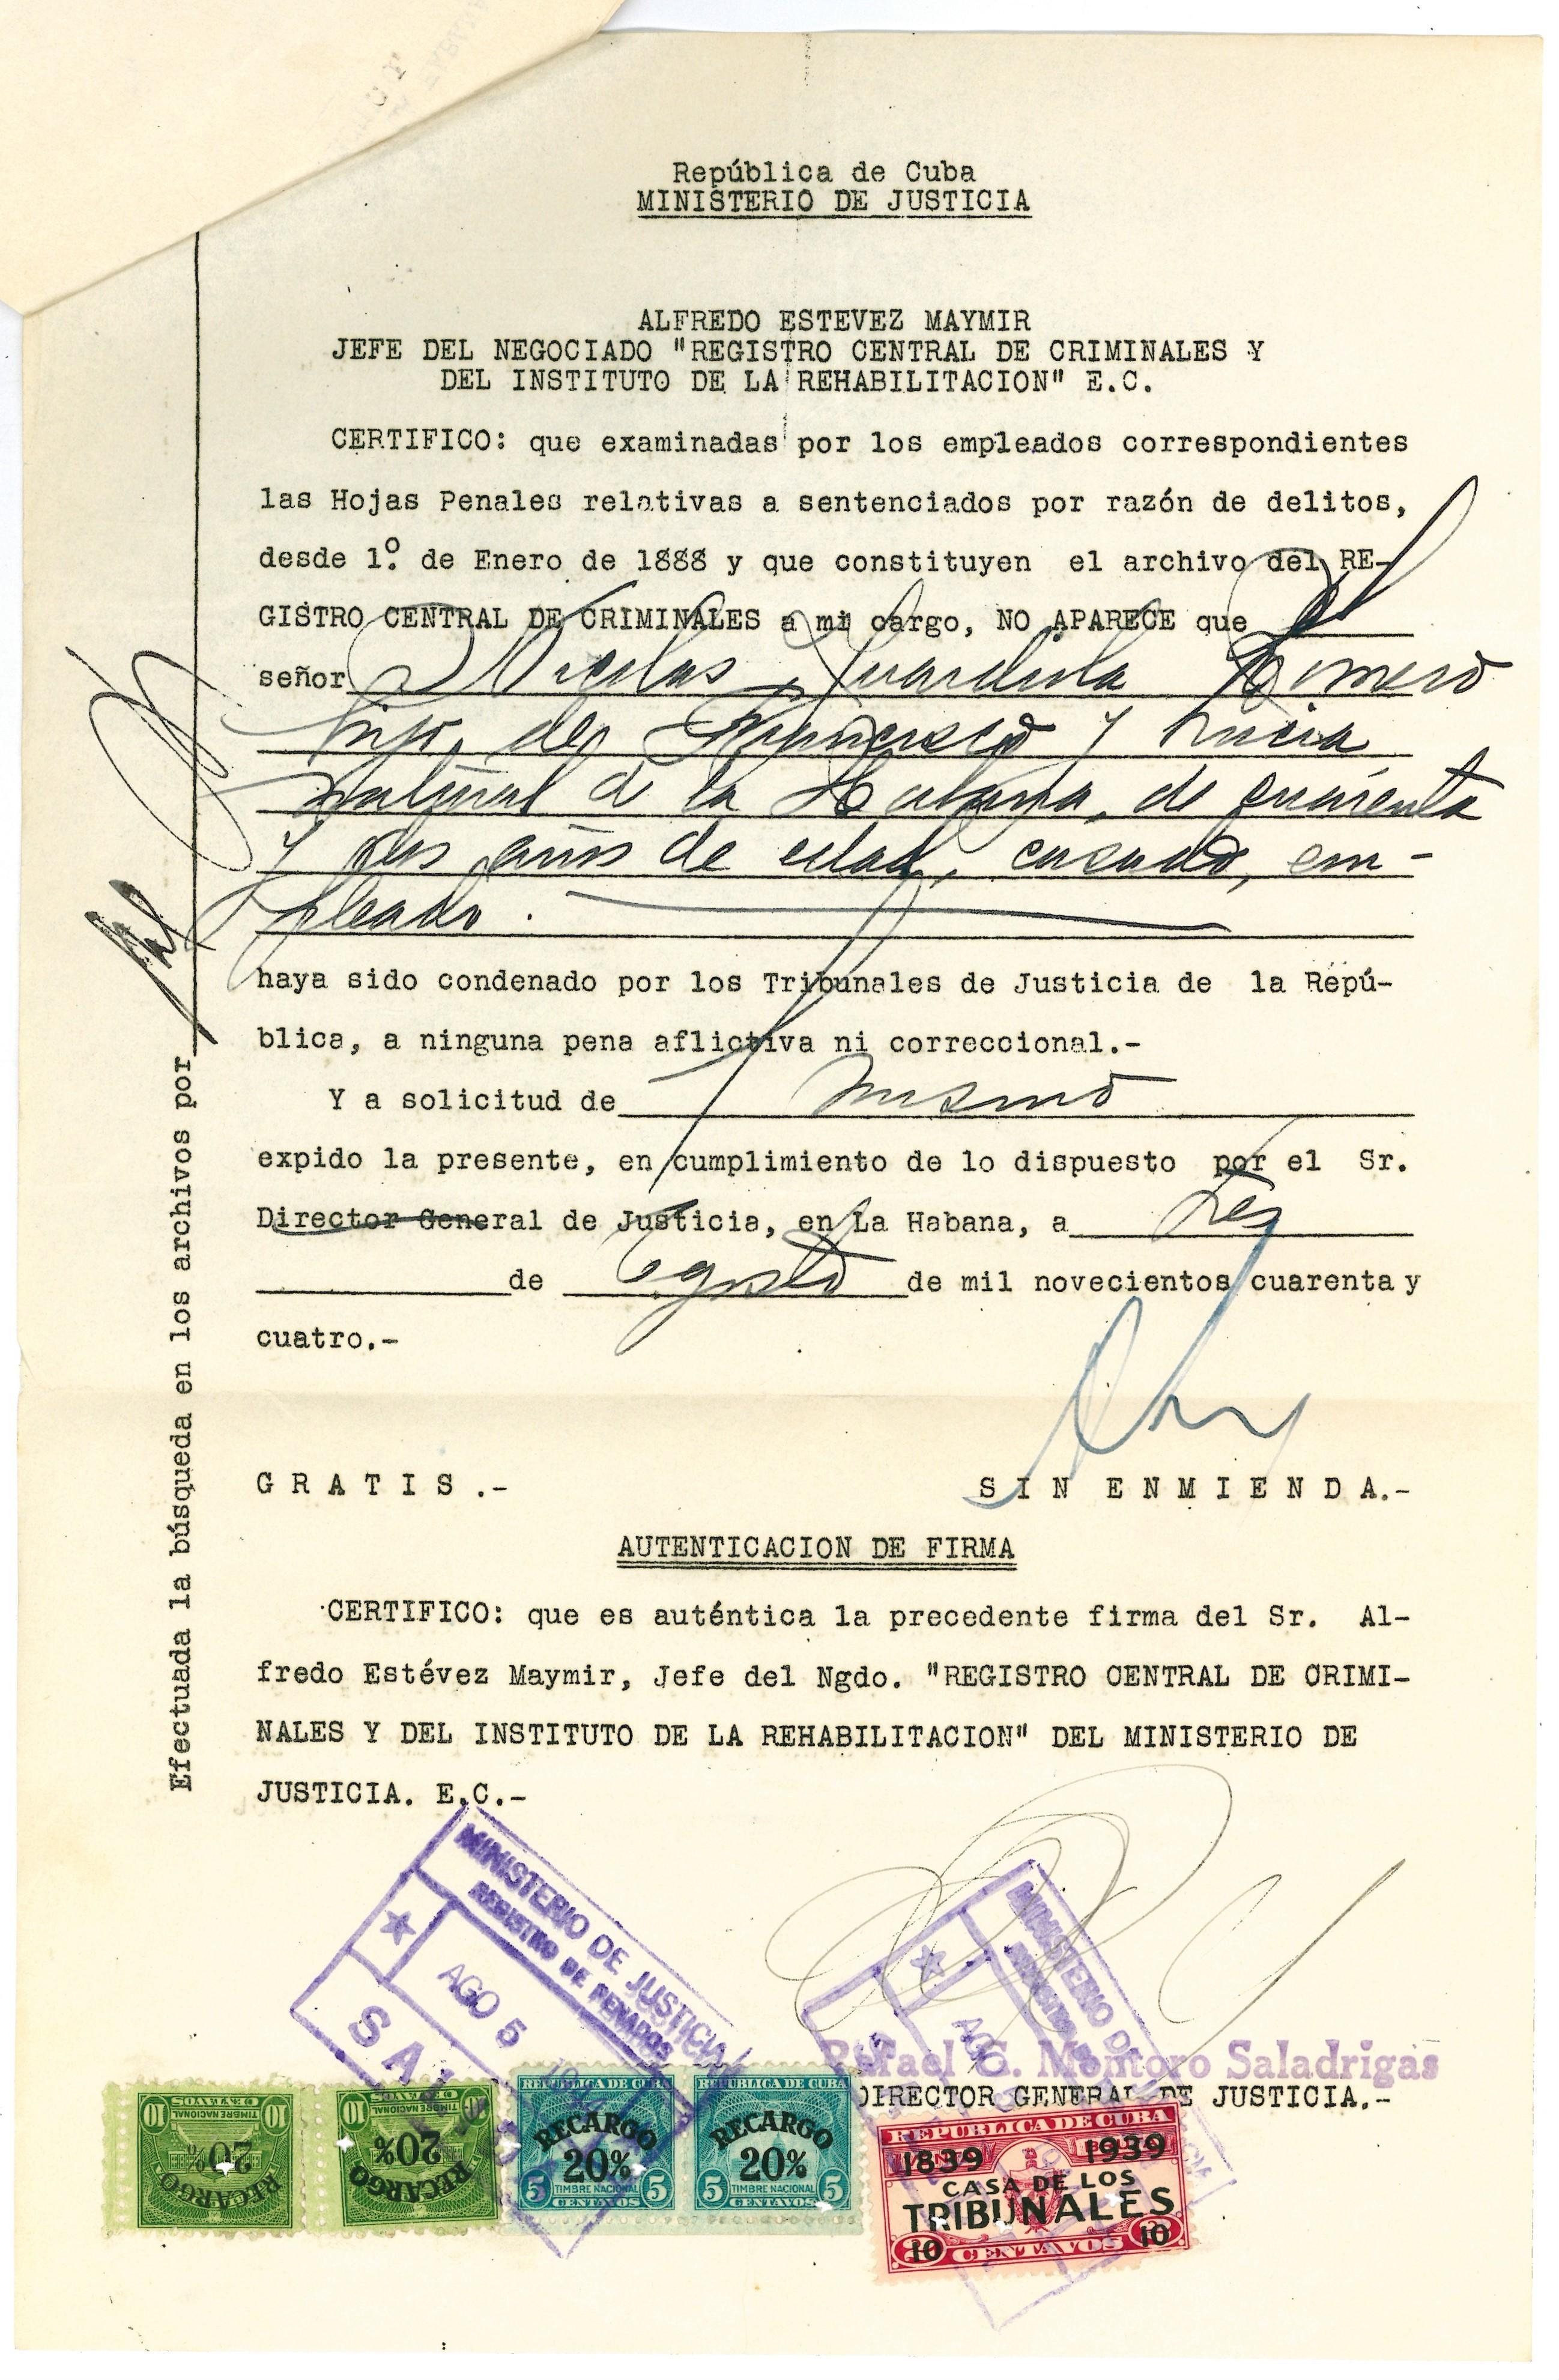 República de Cuba
MINISTERIO DE JUSTICIA
ALFREDO ESTEVEZ MAYMIR
JEFE DEL NEGOCIADO "REGISTRO CENTRAL DE CRIMINALES Y
DEL INSTITUTO DE LA REHABILITACION" E.C.
CERTIFICO: que examinadas por los empleados correspondientes
las Hojas Penales relativas a sentenciados por razón de delitos,
desde 1º. de Enero de 1888 y que constituyen el archivo del RE-
GISTRO CENTRAL DE CRIMINALES a mi cargo, NO APARECE que el
señor Nicolas Guardiola Romero
hijo de Francisco y Lucia
natural de la Habana, de cuarenta
y dos años de edad, casado, em-
pleado.
haya sido condenado por los Tribunales de Justicia de la Repú-
blica, a ninguna pena aflictiva ni correccional.-
Y a solicitud de mismo
expido la presente, en cumplimiento de lo dispuesto por el Sr.
Director General de Justicia, en La Habana, a tres
de agosto de mil novecientos cuarenta y
cuatro.-
GRATIS.- SIN ENMIENDA.-
AUTENTICACION DE FIRMA
CERTIFICO: que es auténtica la precedente firma del Sr. Al-
fredo Estévez Maymir, Jefe del Ngdo. "REGISTRO CENTRAL DE CRIMI-
NALES Y DEL INSTITUTO DE LA REHABILITACION" DEL MINISTERIO DE
JUSTICIA. E.C.-
Efectuada la búsqueda en los archivos por
MINISTERIO DE JUSTICIA
REGISTRO DE PENADOS
AGO 5
MINISTERIO DE
AGO
Rafael G. Montoro Saladrigas
DIRECTOR GENERAL DE JUSTICIA.-
10 CENTAVOS 10
TIMBRE NACIONAL
20%
RECARGO
10 CENTAVOS 10
TIMBRE NACIONAL
20%
RECARGO
REPUBLICA DE CUBA
RECARGO
20%
5 TIMBRE NACIONAL 5
CENTAVOS
REPUBLICA DE CUBA
RECARGO
20%
5 TIMBRE NACIONAL 5
CENTAVOS
REPUBLICA DE CUBA
1839 1939
CASA DE LOS
TRIBUNALES
10 CENTAVOS 10